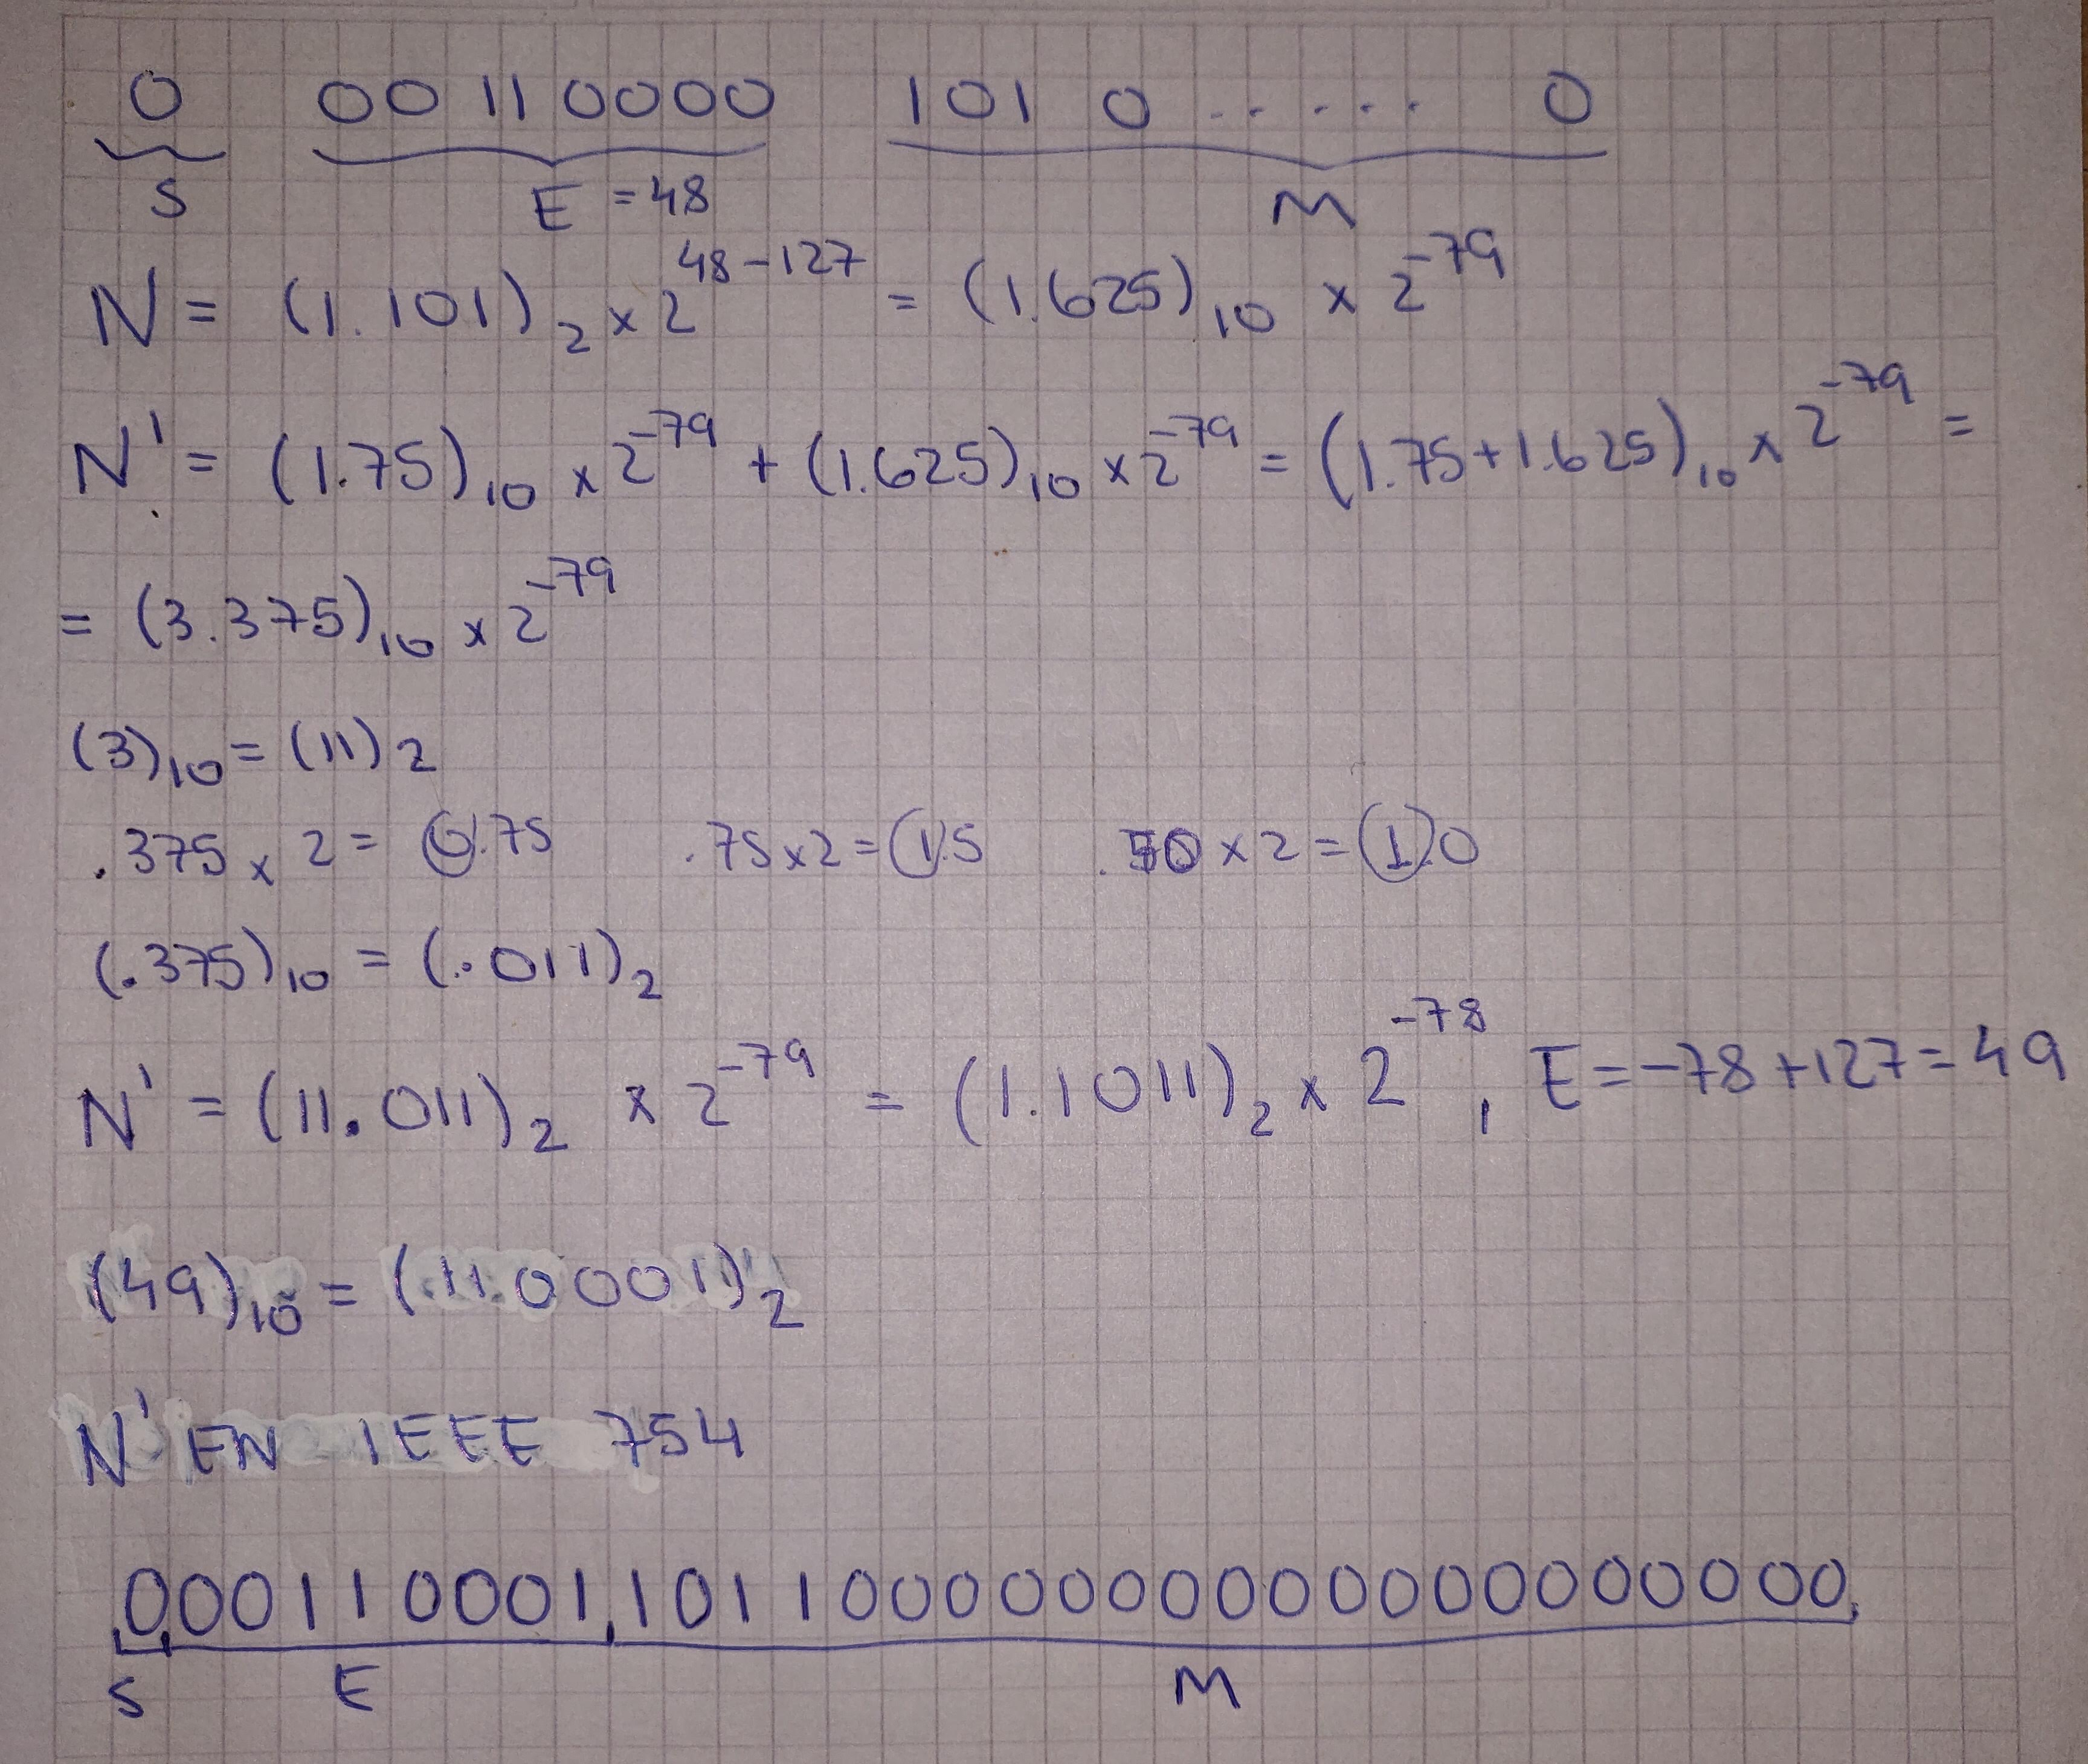 0 00110000 101 0 ...... 0
S E = 48 M
N = (1.101)₂ x 2⁴⁸⁻¹²⁷ = (1.625)₁₀ x 2⁻⁷⁹
N' = (1.75)₁₀ x 2⁻⁷⁹ + (1.625)₁₀ x 2⁻⁷⁹ = (1.75+1.625)₁₀ x 2⁻⁷⁹ =
= (3.375)₁₀ x 2⁻⁷⁹
(3)₁₀ = (11)₂
.375 x 2 = 0.75 .75 x 2 = 1.5 .50 x 2 = 1.0
(.375)₁₀ = (.011)₂
N' = (11.011)₂ x 2⁻⁷⁹ = (1.1011)₂ x 2⁻⁷⁸, E = -78 + 127 = 49
(49)₁₀ = (110001)₂
N' EN IEEE 754
0 00110001 10110000000000000000000
S E M